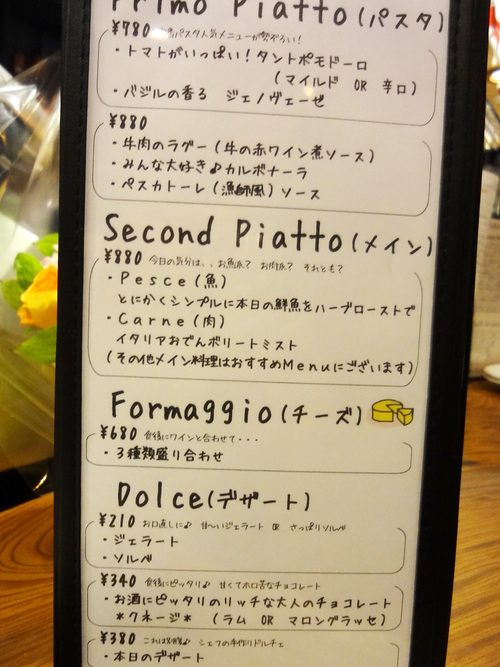 Primo Piatto(パスタ)
¥780 パスタ人気メニューが勢ぞろい!
・トマトがいっぱい!タントポモドーロ
(マイルド OR 辛口)
・バジルの香る ジェノヴェーゼ
¥880
・牛肉のラグー(牛の赤ワイン煮ソース)
・みんな大好き♪カルボナーラ
・ペスカトーレ(漁師風)ソース
Second Piatto(メイン)
¥880 今日の気分は、、お魚派? お肉派? それとも?
・Pesce(魚)
とにかくシンプルに本日の鮮魚をハーブローストで
・Carne(肉)
イタリアおでんボリートミスト
(その他メイン料理はおすすめMenuにございます)
Formaggio(チーズ)
¥680 食後にワインと合わせて・・・
・3種類盛り合わせ
Dolce(デザート)
¥210 お口直しに♪ 甘〜いジェラート OR さっぱりソルベ
・ジェラート
・ソルベ
¥340 食後にピッタリ♪ 甘くてホロ苦なチョコレート
・お酒にピッタリのリッチな大人のチョコレート
*クネージ* (ラム OR マロングラッセ)
¥380 これは別腹♪ シェフの手作りドルチェ
・本日のデザート